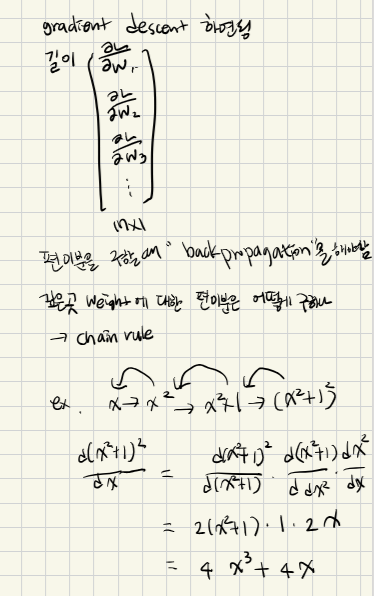 gradient descent 하면됨
길이 ∂L/∂W₁
∂L/∂W₂
∂L/∂W₃
⋮
n×1
편미분을 구할 때 "backpropagation"을 해야함
깊은곳 weight에 대한 편미분은 어떻게 구하나
→ chain rule
ex. x → x² → x²+1 → (x²+1)²
d(x²+1)²/dx = d(x²+1)²/d(x²+1) · d(x²+1)/d dx² · dx²/dx
= 2(x²+1) · 1 · 2x
= 4 x³ + 4x